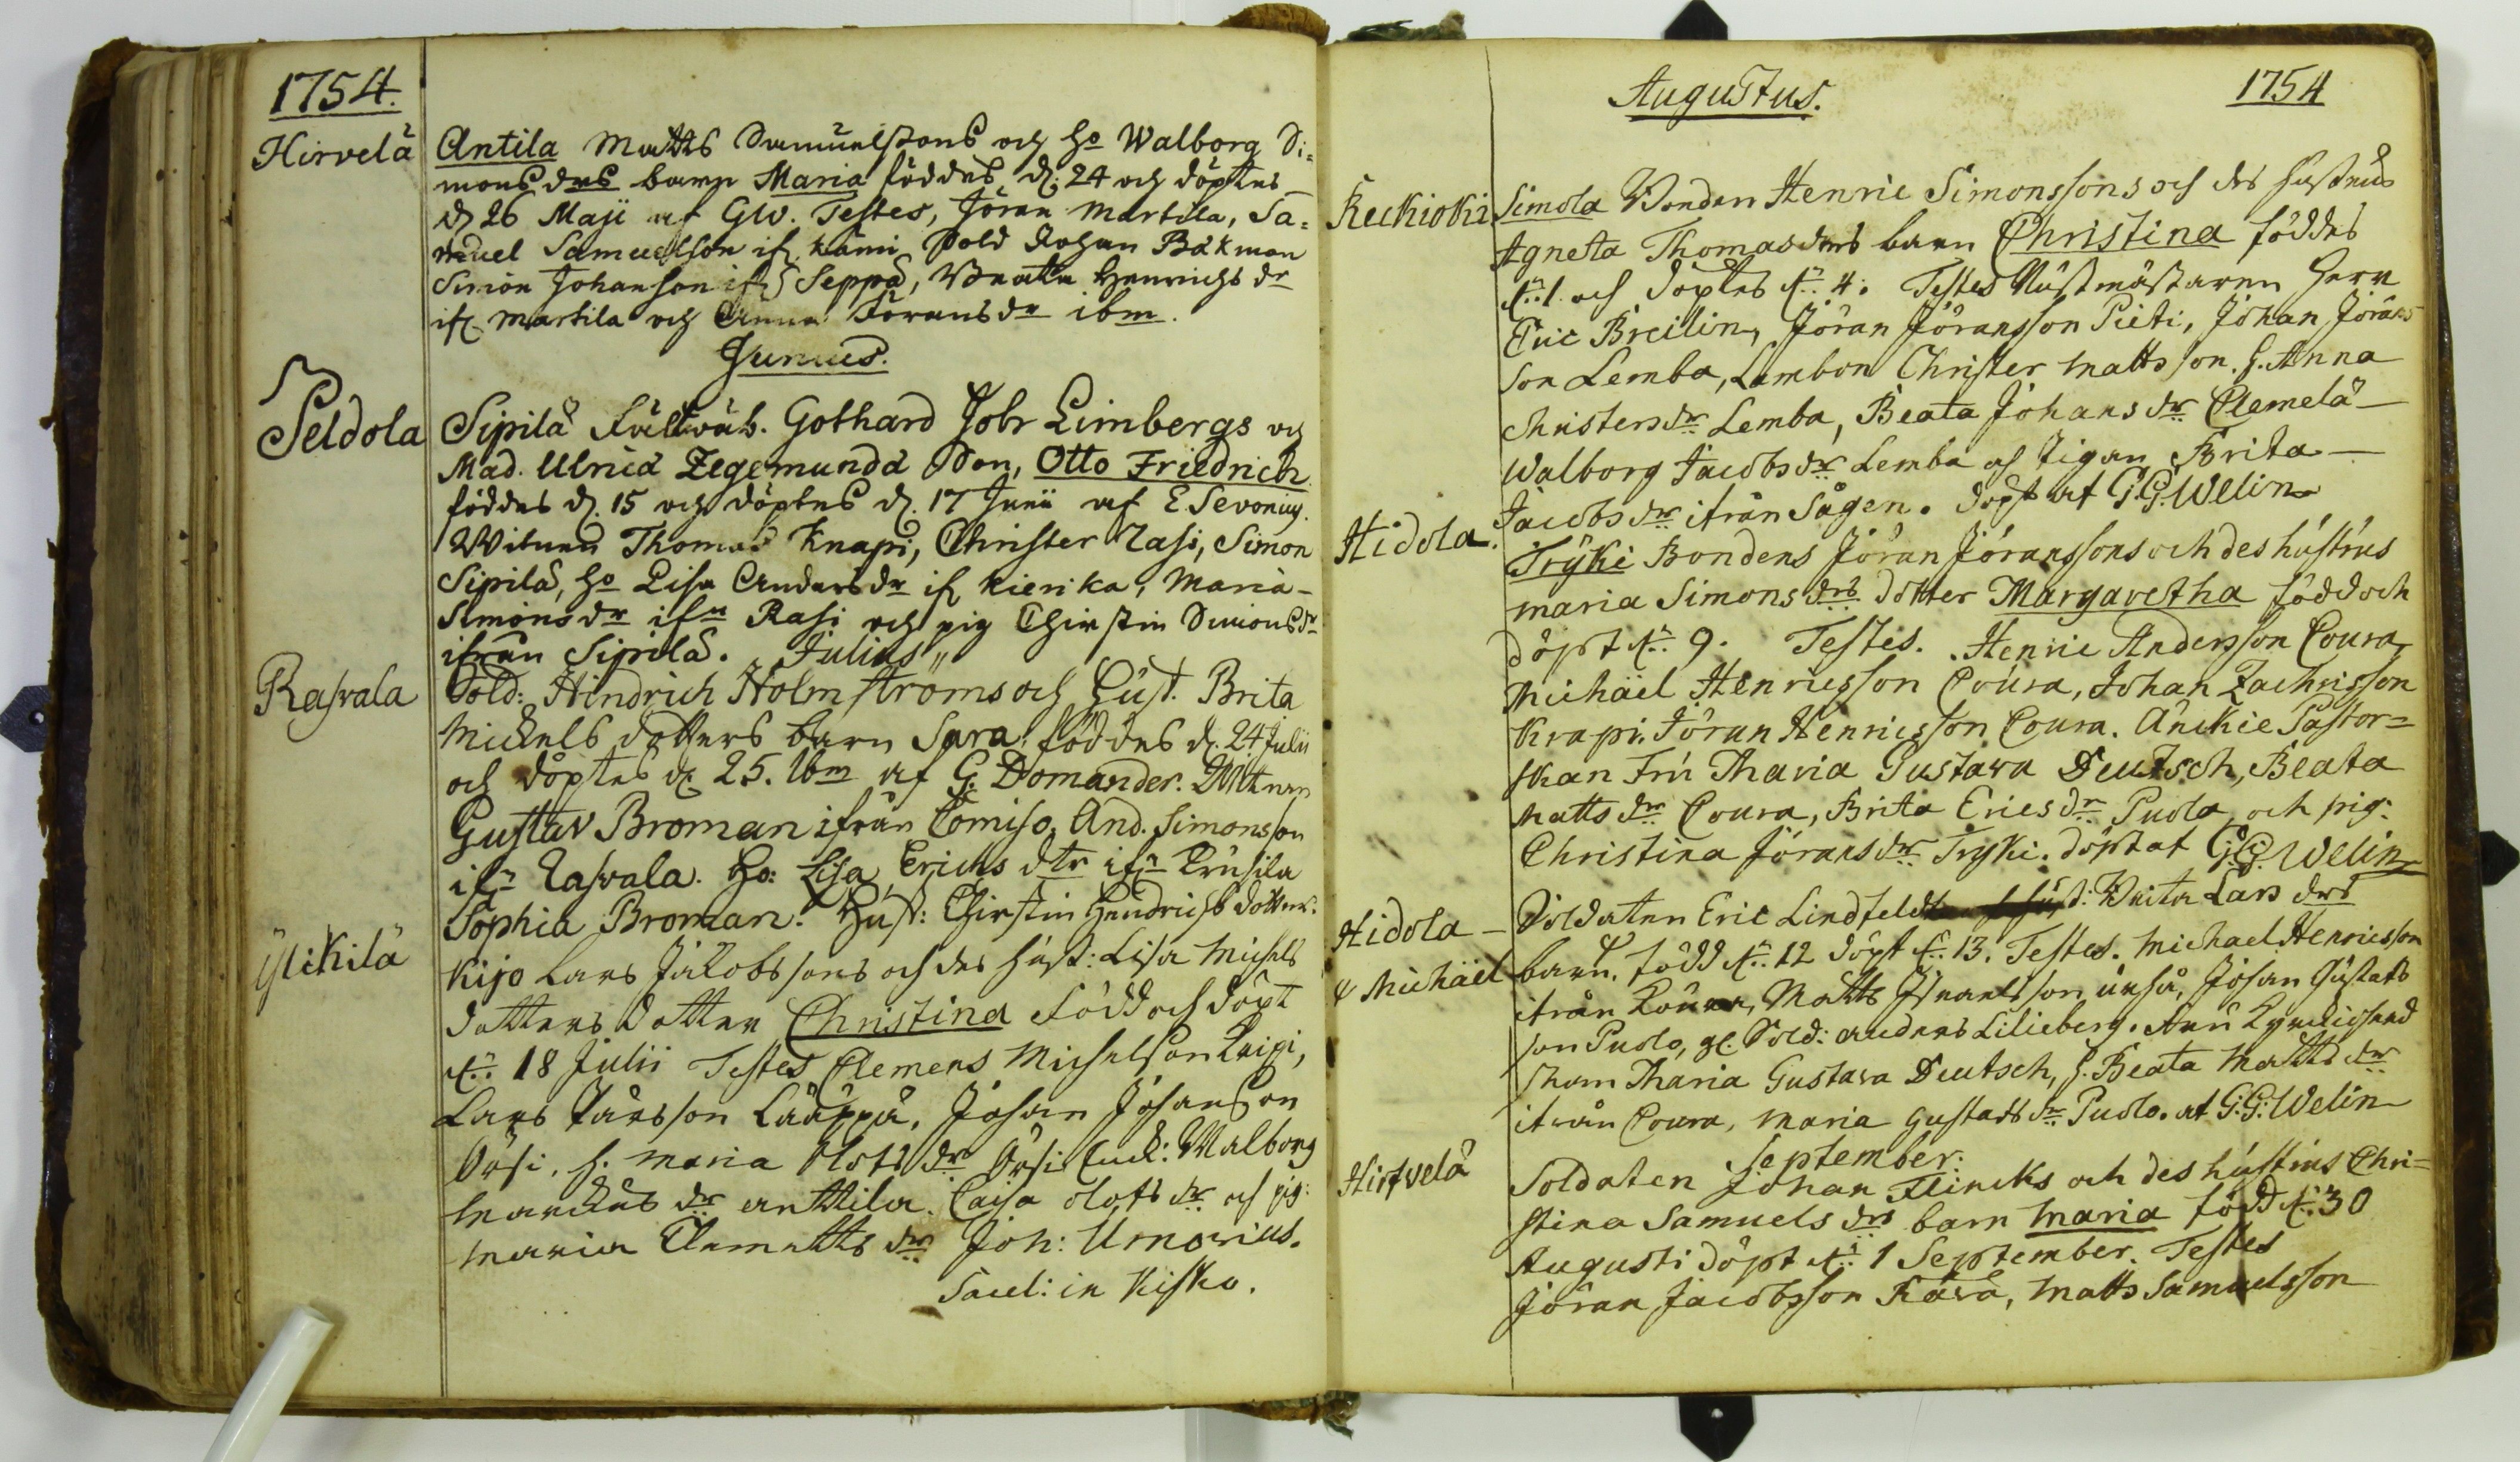 1754.
Hirvelä
Antila Matts Samuelssons och ho Walborg Si=
mons drs barn Maria föddes d. 24 och döptes
d 26 Maji af GW. Testes, Jöran Martila, Sa=
muel Samuelson if Kämi, Sold Johan Bäkman
Simon Johanson if Seppä, Beata Henrichs dr
if Martila och Anna Jöransdr ibm.
Junius.
Peldola
Sipilä Fältwäb. Gothard Joh Limbergs och
Mad. Ulrica Zegemunda Son, Otto Friedrich
föddes d. 15 och döptes d. 17 Junii af E. Sevonius.
Witnen Thomas Knapi, Christer Rasi, Simon
Sipilä, ho Lisa Anders dr if Kierika, Maria
Simons dr ifn Rasi och pig Chirstin Simons dr
ifrån Sipilä. Julius
Rasvala
Sold: Hindrich Holmströms och Hust. Brita
Mickels dotters barn Sara, föddes d. 24 Julii
och döptes d. 25. Ibm af G: Domander. Witnen
Gustav Broman ifrån Comiso, And. Simonsson
ifn Rasvala. Ho: Lisa Erichs dtr ifn Prusila
Sophia Broman. Hust: Chirstin Hendrichs dotter.
Ylikilä
Kijo Lars Jakobssons och des hust: Lisa Michels
dotters dotter Christina född och döpt
dn 18 Julii Testes Clemens Michelson Knipi,
Lars Larsson Lääppä, Johan Johansson
Örsi, h. Maria Olofs dr Örsi Enck: Walborg
Marckus dr Anttila. Caisa Olofs dr och pig:
Maria Clemetts dr Joh: Umorius.
Sacel: in Kisko.
Augustus. 1754
Keckioki
Simola Bonden Henric Simonssons och des hustrus
Agneta Thomas drs barn Christina föddes
dn 1. och döptes dn 4. Testes Rustmästaren Herr
Eric Breilin, Jöran Jöransson Pieti, Johan Jörans
son Lemba, Lambon Christer Mattsson. h. Anna
Christers dr Lemba, Beata Johans dr Clemelä
Walborg Jacobs dr Lemba och Pigan Brita
Jacobs dr ifrån Sågen. döpt af G:G: Welin
Hidola.
Tryki Bondens Jöran Jöranssons och des hustrus
Maria Simons drs dotter Margaretha född och
döpt dn 9. Testes. Henric Andersson Coura,
Michäel Henricsson Coura, Johan Zachrisson
Krapi. Jöran Henricsson Coura. Änckie Pastor=
skan Fru Maria Gustava Deutsch, Beata
Matts dr Coura, Brita Erics dr Puolo, och pig:
Christina Jörans dr Tryki. döpt af G:G: Welin
Hidola
Soldaten Eric Lindfeldt hust: Brita Lars drs
barn. född dn 12 döpt dn 13. Testes. Michael Henricsson
Michäel
ifrån Coura, Matts Israelsson, Johan Gustafs
son Puolo, gl Sold: Anders Lilieberg.
Maria Gustava Deutsch, h. Beata Matts dr
ifrån Coura, Maria Gustafs dr Puolo. af G:G: Welin
September.
Hirfvelä
Soldaten Johan Flincks och des hustrus Chri=
stina Samuels drs barn Maria född dn 30
Augusti döpt dn 1 September. Testes
Jöran Jacobsson Karä, Matts Samuelsson